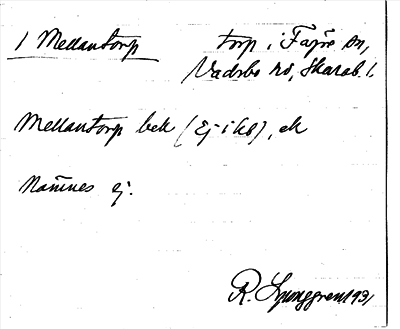 1 Mellantorp torp i Fågre sn,
Vadsbo hd, Skarab. l.
Mellantorp bek (Ej i kb), ek
Namnes ej.
R. Ljunggren 1931